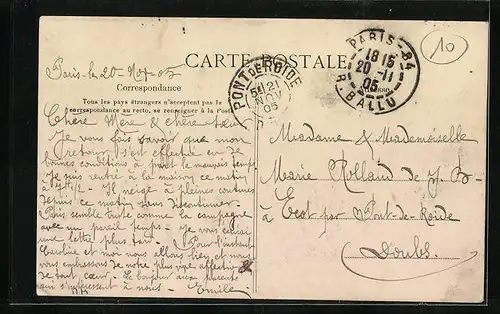 CARTE POSTALE
Correspondance
Tous les pays étrangers n'acceptent pas la
correspondance au recto, se renseigner à la Poste
PARIS-84
18 15
20-11
05
R. BALLU
PONT DE ROIDE
21
NOV
05
10
Paris le 20 - Nov - 05
Chère Mère & chère sœur
Je vous fais savoir que mon
retour s'est effectué en de
bonnes conditions à part le mauvais temps
Je suis rentré à la maison ce matin
à 7h 1/2 - Il neige à pleines
depuis ce matin sans discontinuer.
Paris semble triste comme la campagne
avec un pareil temps - Je vous écrirai
une lettre plus tard. Pour l'instant
Caroline et moi nous allons bien et nous
vous embrassons de notre plus vive affection
de tout cœur. Le bonjour aux parents
qui s'intéressent à nous - Emile
Madame & Mademoiselle
Marie Rolland de J. B-
à Ecot par Pont-de-Roide
Doubs.